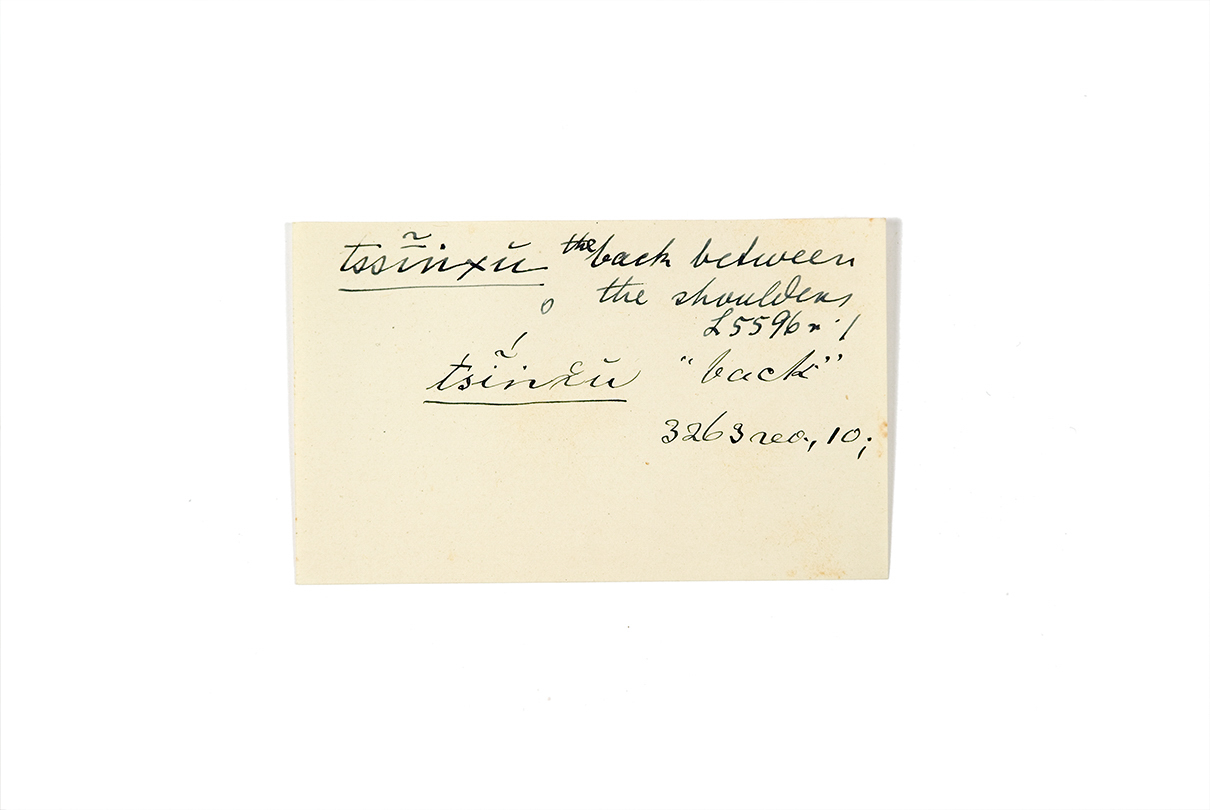 tssī̃nxŭ the back between
the shoulders
L5596 r. 1
tsĩ́nxŭ "back"
3263 rev., 10;